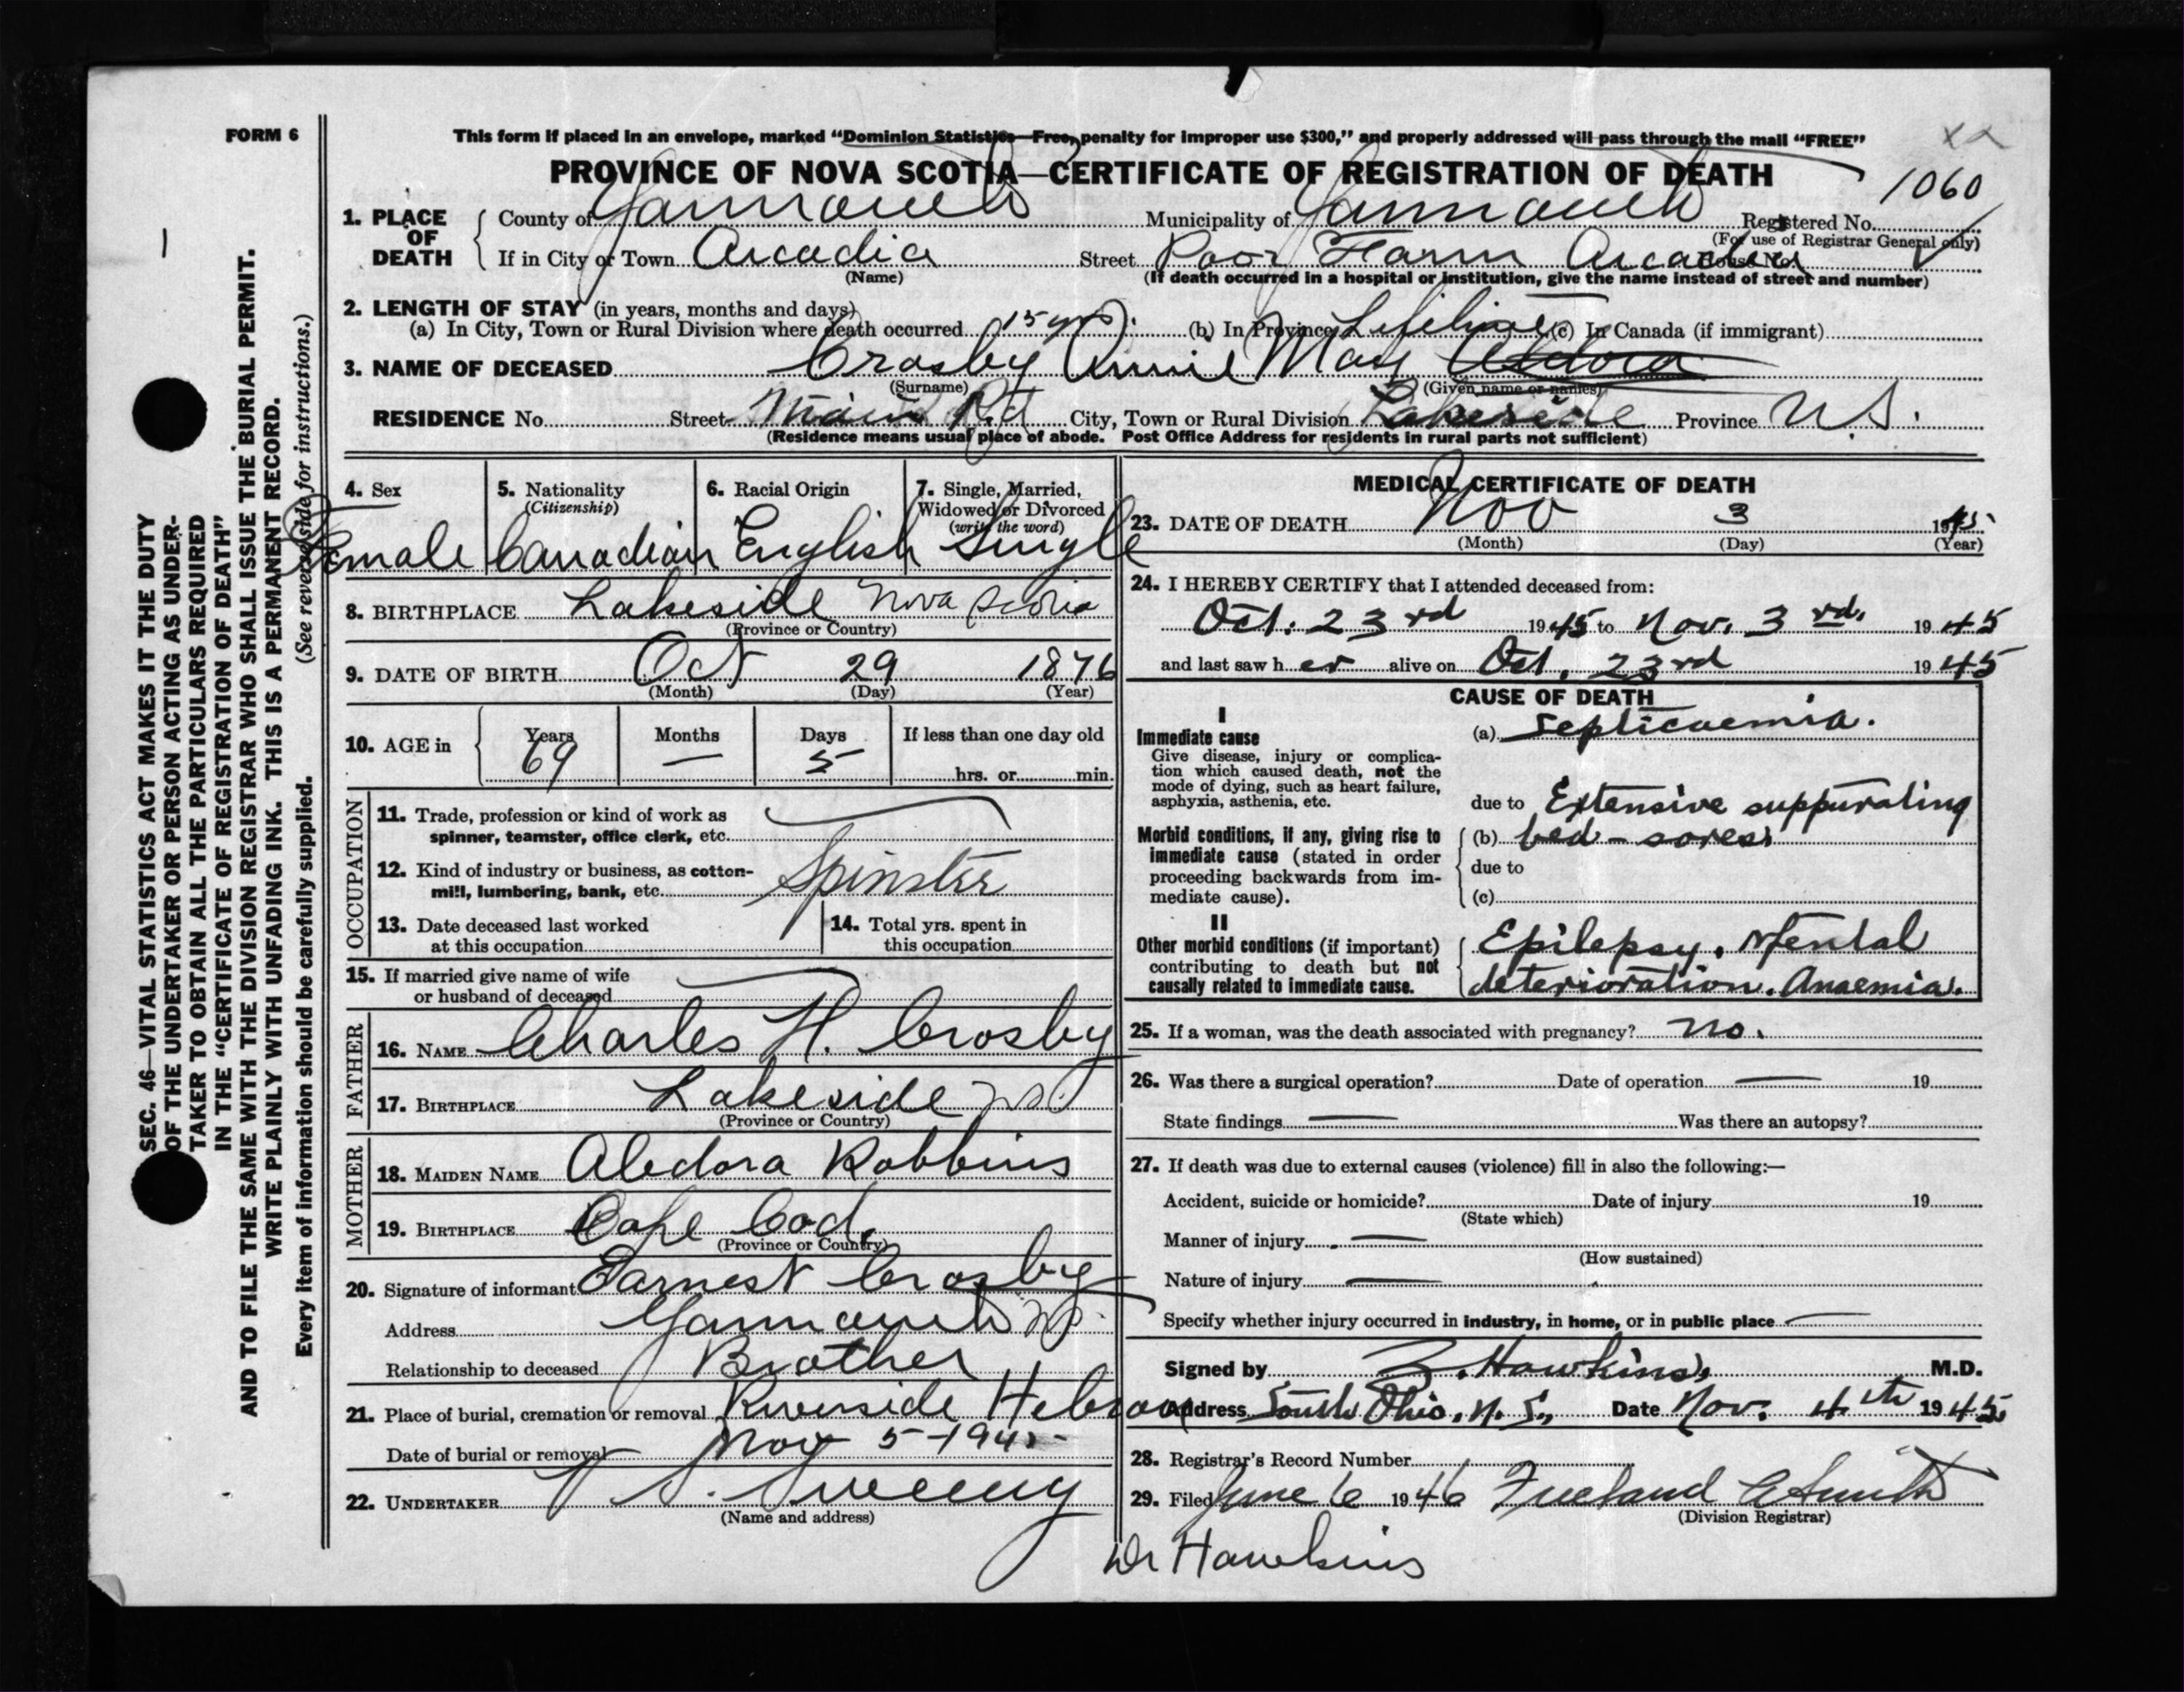 FORM 6
This form if placed in an envelope, marked “Dominion Statistics—Free, penalty for improper use $300,” and properly addressed will pass through the mail “FREE”
PROVINCE OF NOVA SCOTIA—CERTIFICATE OF REGISTRATION OF DEATH
1060
1. PLACE OF DEATH
County of Yarmouth Municipality of Yarmouth Registered No.
(For use of Registrar General only)
If in City or Town Arcadia Street Poor Farm Arcadia House No.
(Name) (If death occurred in a hospital or institution, give the name instead of street and number)
2. LENGTH OF STAY (in years, months and days)
(a) In City, Town or Rural Division where death occurred 15 yrs. (b) In Province Lifetime (c) In Canada (if immigrant)
3. NAME OF DECEASED Crosby Annie May Aldora
(Surname) (Given name or names)
RESIDENCE No. Street Main Rd City, Town or Rural Division Lakeside Province N.S.
(Residence means usual place of abode. Post Office Address for residents in rural parts not sufficient)
4. Sex
Female
5. Nationality
(Citizenship)
Canadian
6. Racial Origin
English
7. Single, Married,
Widowed or Divorced
(write the word)
Single
8. BIRTHPLACE Lakeside Nova Scotia
(Province or Country)
9. DATE OF BIRTH Oct 29 1876
(Month) (Day) (Year)
10. AGE in
Years Months Days If less than one day old
69 — 5 hrs. or min.
OCCUPATION
11. Trade, profession or kind of work as
spinner, teamster, office clerk, etc.
12. Kind of industry or business, as cotton-
mill, lumbering, bank, etc. Spinster
13. Date deceased last worked
at this occupation
14. Total yrs. spent in
this occupation
15. If married give name of wife
or husband of deceased
FATHER
16. NAME Charles H. Crosby
17. BIRTHPLACE Lakeside NS
(Province or Country)
MOTHER
18. MAIDEN NAME Aledora Robbins
19. BIRTHPLACE Cape Cod.
(Province or Country)
20. Signature of informant Earnest Crosby
Address Yarmouth NS.
Relationship to deceased Brother
21. Place of burial, cremation or removal Riverside Hebron
Date of burial or removal Nov 5-1945
22. UNDERTAKER V S. Sweeny
(Name and address)
MEDICAL CERTIFICATE OF DEATH
23. DATE OF DEATH Nov 3 1945
(Month) (Day) (Year)
24. I HEREBY CERTIFY that I attended deceased from:
Oct. 23rd 1945 to Nov. 3rd. 1945
and last saw her alive on Oct. 23rd 1945
CAUSE OF DEATH
I
Immediate cause
Give disease, injury or complica-
tion which caused death, not the
mode of dying, such as heart failure,
asphyxia, asthenia, etc.
(a) Septicaemia.
due to Extensive suppurating
Morbid conditions, if any, giving rise to
immediate cause (stated in order
proceeding backwards from im-
mediate cause).
(b) bed-sores.
due to
(c)
II
Other morbid conditions (if important)
contributing to death but not
causally related to immediate cause.
Epilepsy. Mental
deterioration. Anaemia.
25. If a woman, was the death associated with pregnancy? no.
26. Was there a surgical operation? Date of operation — 19
State findings — Was there an autopsy?
27. If death was due to external causes (violence) fill in also the following:—
Accident, suicide or homicide? Date of injury 19
(State which)
Manner of injury —
(How sustained)
Nature of injury —
Specify whether injury occurred in industry, in home, or in public place —
Signed by Z. Hawkins, M.D.
Address South Ohio, N.S., Date Nov. 4th 1945
28. Registrar's Record Number
29. Filed June 6 1946 Freeland E Smith
(Division Registrar)
Dr Hawkins
SEC. 46—VITAL STATISTICS ACT MAKES IT THE DUTY
OF THE UNDERTAKER OR PERSON ACTING AS UNDER-
TAKER TO OBTAIN ALL THE PARTICULARS REQUIRED
IN THE “CERTIFICATE OF REGISTRATION OF DEATH”
AND TO FILE THE SAME WITH THE DIVISION REGISTRAR WHO SHALL ISSUE THE BURIAL PERMIT.
WRITE PLAINLY WITH UNFADING INK. THIS IS A PERMANENT RECORD.
Every item of information should be carefully supplied. (See reverse side for instructions.)